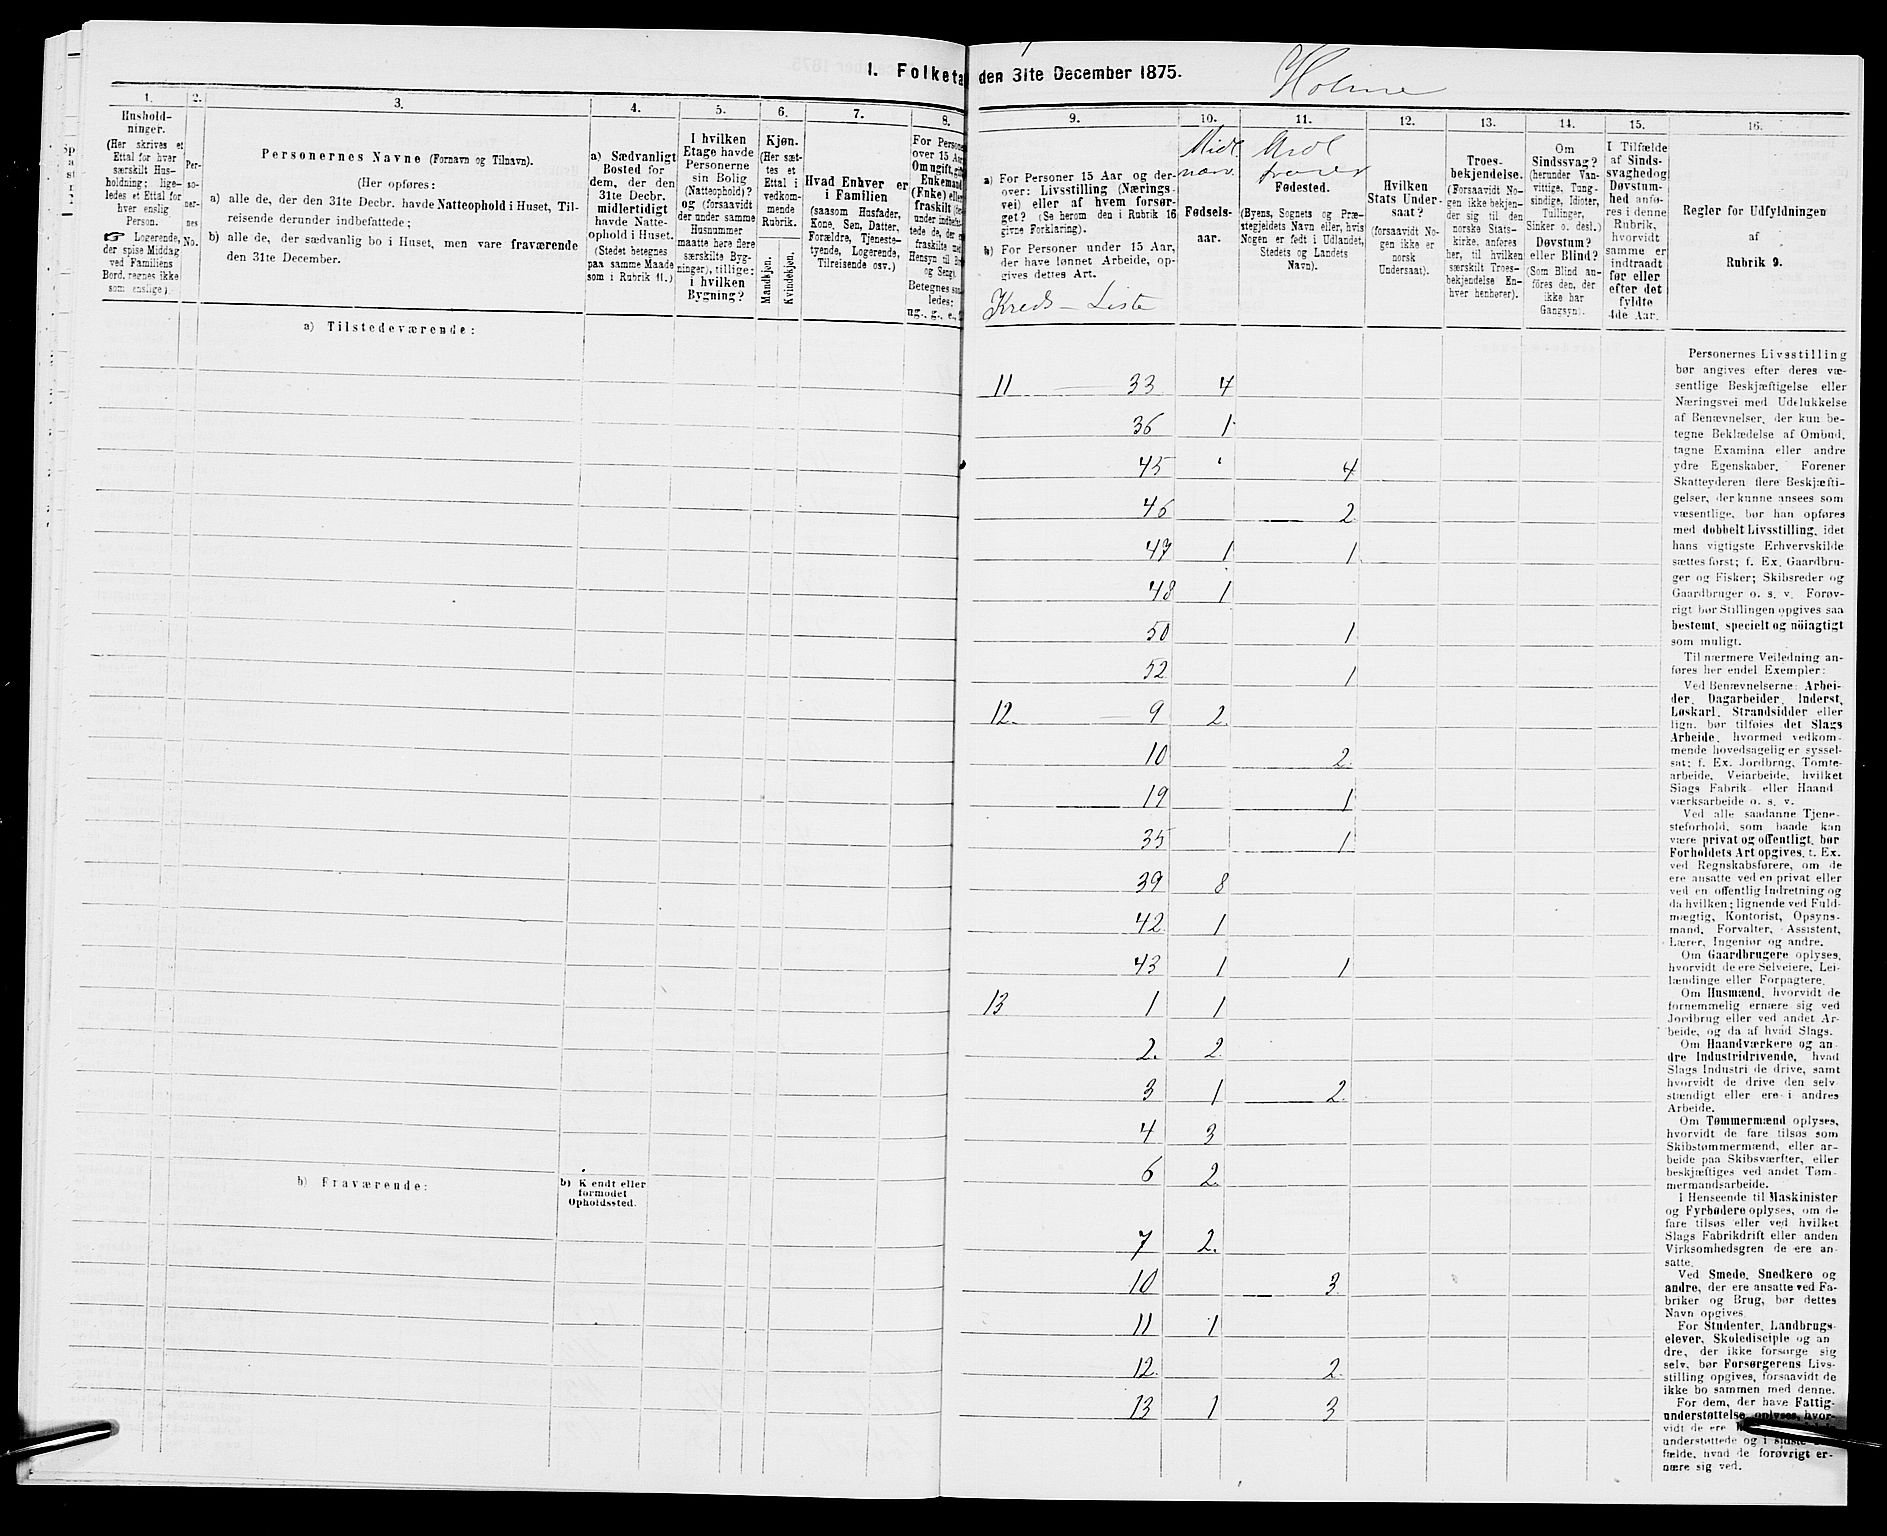 1. Folketa den 31te December 1875. Holme
1.
Hushold-
ninger.
(Her skrives et
Ettal for hver
særskilt Hus-
holdning; lige-
ledes et Ettal for
hver enslig
Person.
☞ Logerende,
der spise Middag
ved Familiens
Bord, regnes ikke
som enslige).
2.
Per-
so-
ner-
nes
No.
3.
Personernes Navne (Fornavn og Tilnavn).
(Her opføres:
a) alle de, der den 31te Decbr. havde Natteophold i Huset, Til-
reisende derunder indbefattede;
b) alle de, der sædvanlig bo i Huset, men vare fraværende
den 31te December.
4.
a) Sædvanligt
Bosted for
dem, der den
31te Decbr.
midlertidigt
havde Natte-
ophold i Huset.
(Stedet betegnes
paa samme Maade
som i Rubrik 11.)
5.
I hvilken
Etage havde
Personerne
sin Bolig
(Natteophold)?
og (forsaavidt
der under samme
Husnummer
maatte høre flere
særskilte Byg-
ninger), tillige:
i hvilken
Bygning?
6.
Kjøn.
(Her sæt-
tes et
Ettal i
vedkom-
mende
Rubrik.
Mandkjøn.
Kvindekjøn.
7.
Hvad Enhver er
i Familien
(saasom Husfader,
Kone, Søn, Datter,
Forældre, Tjeneste-
tyende, Logerende,
Tilreisende osv.)
8.
For Persone
over 15 Aar
Om ugift, gift
Enkemand
(Enke) eller
fraskilt
Betegnes saa-
ledes:
ug., g., e.,
a) Tilstedeværende:
b) Fraværende:
b) Kjendt eller
formodet
Opholdssted.
9.
a) For Personer 15 Aar og der-
over: Livsstilling (Nærings-
vei) eller af hvem forsør-
get? (Se herom den i Rubrik 16
givne Forklaring).
b) For Personer under 15 Aar,
der have lønnet Arbeide, op-
gives dettes Art.
Kreds – Liste
10.
Midl
nærv.
Fødsels-
aar.
11.
Midl
fravær
Fødested.
(Byens, Sognets og Præ-
stegjeldets Navn eller, hvis
Nogen er født i Udlandet,
Stedets og Landets
Navn).
12.
Hvilken
Stats Under-
saat?
(forsaavidt No-
gen ikke er
norsk
Undersaat).
13.
Troes-
bekjendelse.
(Forsaavidt No-
gen ikke bekjen-
der sig til den
norske Stats-
kirke, anføres
her, til hvilken
særskilt Troes-
bekjendelse En-
hver henhører).
14.
Om
Sindssvag?
(herunder Van-
vittige, Tung-
sindige, Idioter,
Tullinger,
Sinker o. desl.)
Døvstum?
eller Blind?
(Som Blind an-
føres den, der
ikke har
Gangsyn).
15.
I Tilfælde
af Sinds-
svaghed og
Døvstum-
hed anfø-
res i denne
Rubrik,
hvorvidt
samme er
indtraadt
før eller
efter det
fyldte
4de Aar.
16.
Regler for Udfyldningen
af
Rubrik 9.
11 — 33 4
36 1
45 4
46 2
47 1 1
48 1
50 1
52 1
12. — 9 2.
10 2.
19 1
35 1
39 8
42 1
43 1 1
13 1 1
2. 2
3 1 2.
4 3
6 2.
7 2.
10 3
11 1
12. 2.
13 1 3
Personernes Livsstilling
bør angives efter deres væ-
sentlige Beskjæftigelse eller
Næringsvei med Udelukkelse
af Benævnelser, der kun be-
tegne Beklædelse af Ombud,
tagne Examina eller andre
ydre Egenskaber. Forener
Skatteyderen flere Beskjæfti-
gelser, der kunne ansees som
væsentlige, bør han opføres
med dobbelt Livsstilling, idet
hans vigtigste Erhvervskilde
sættes først; f. Ex. Gaardbru-
ger og Fisker; Skibsreder og
Gaardbruger o. s. v. Forøv-
rigt bør Stillingen opgives saa
bestemt, specielt og nöiagtigt
som muligt.
Til nærmere Veiledning an-
føres her endel Exempler:
Ved Benævnelserne: Arbei-
der, Dagarbeider, Inderst,
Løskarl, Strandsidder eller
lign. bør tilføies det Slags
Arbeide, hvormed vedkom-
mende hovedsagelig er syssel-
sat; f. Ex. Jordbrug, Tomte-
arbeide, Veiarbeide, hvilket
Slags Fabrik- eller Haand
værksarbeide o. s. v.
Ved alle saadanne Tjene-
steforhold, som baade kan
være privat og offentligt, bør
Forholdets Art opgives, t. Ex.
ved Regnskabsførere, om de
ere ansatte ved en privat eller
ved en offentlig Indretning og
da hvilken; lignende ved Fuld-
mægtig, Kontorist, Opsyns-
mand, Forvalter, Assistent,
Lærer, Ingeniør og andre.
Om Gaardbrugere oplyses,
hvorvidt de ere Selveiere, Lei-
lændinge eller Forpagtere.
Om Husmænd, hvorvidt de
fornemmelig ernære sig ved
Jordbrug eller ved andet Ar-
beide, og da af hvad Slags.
Om Haandværkere og an
dre Industridrivende, hvad
Slags Industri de drive, samt
hvorvidt de drive den selv-
stændigt eller ere i andres
Arbeide.
Om Tømmermænd oplyses,
hvorvidt de fare tilsøs som
Skibstømmermænd, eller ar-
beide paa Skibsværfter, eller
beskjæftiges ved andet Tøm-
mermandsarbeide.
I Henseende til Maskinister
og Fyrbødere oplyses, om de
fare tilsøs eller ved hvilket
Slags Fabrikdrift eller anden
Virksomhedsgren de ere an-
satte.
Ved Smede, Snedkere og
andre, der ere ansatte ved Fa-
briker og Brug, bør dettes
Navn opgives.
For Studenter, Landbrugs-
elever, Skoledisciple og an
dre, der ikke forsørge sig
selv, bør Forsørgerens Livs-
stilling opgives, forsaavidt de
ikke bo sammen med denne.
For dem, der have Fattig-
understøttelse, oplyses, hvor-
vidt de ere
understøttede og i sidste
fælde, hvad de forøvrigt er-
nære sig ved.